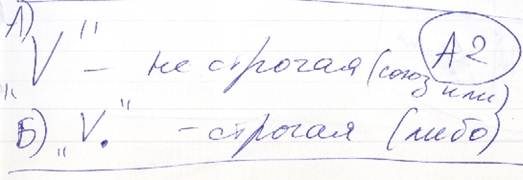 А)
„V" – не строгая (союз или)
А2
Б) „V." – строгая (либо)